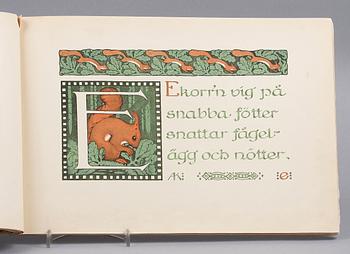 E
Ekorr'n vig på
snabba fötter
snattar fågel-
ägg och nötter.
AK e